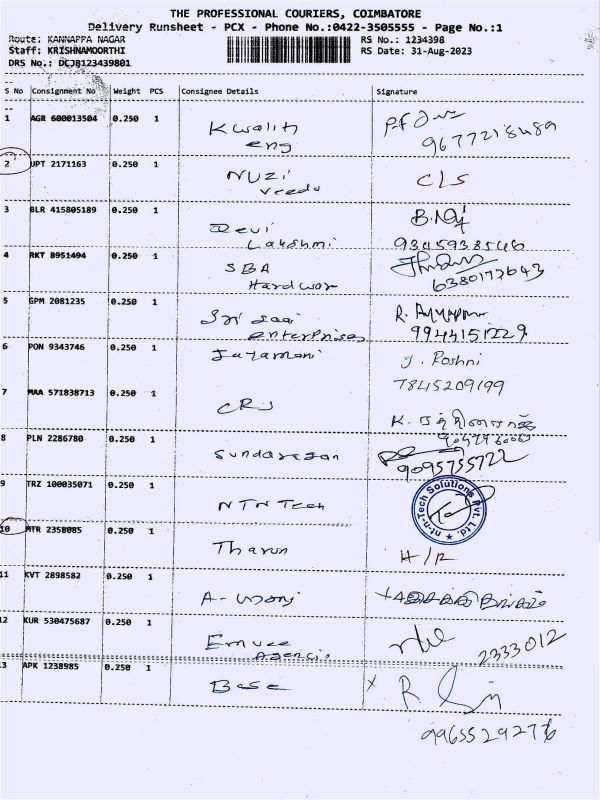 THE PROFESSIONAL COURIERS, COIMBATORE
Delivery Runsheet - PCX - Phone No.:0422-3505555 - Page No.:1
Route: KANNAPPA NAGAR RS No.: 1234398
Staff: KRISHNAMOORTHI RS Date: 31-Aug-2023
DRS No.: DCJB123439801
S No Consignment No Weight PCS Consignee Details Signature
1 AGR 600013504 0.250 1 Kwalith
eng
2 JPT 2171163 0.250 1 NUZi CLS
veedu
3 BLR 415805189 0.250 1 Devi
Lakshmi 9345938546
4 RKT 8951494 0.250 1 SBA
Hardwar 6380177643
5 GPM 2081235 0.250 1 Sri Saai R.
enterprises 9944151229
6 PON 9343746 0.250 1 Jayamani J. Poshni
7845209199
7 MAA 571838713 0.250 1 CRS K.
8 PLN 2286780 0.250 1 Sundaresan
9095755722
9 TRZ 100035071 0.250 1 NTN Tech nt-n-Tech Solutions Pvt. Ltd.
10 MTR 2358085 0.250 1 Tharun H/R
11 KVT 2898582 0.250 1 A-
12 KUR 530475687 0.250 1 Emvee
Agencis 2333012
13 APK 1238985 0.250 1 Base X R